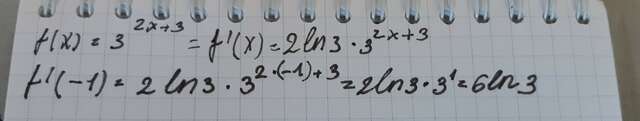 f(x) = 3^{2x+3} = f'(x) = 2ln3 · 3^{2x+3}
f'(-1) = 2 ln3 · 3^{2·(-1)+3} = 2ln3 · 3^1 = 6ln3